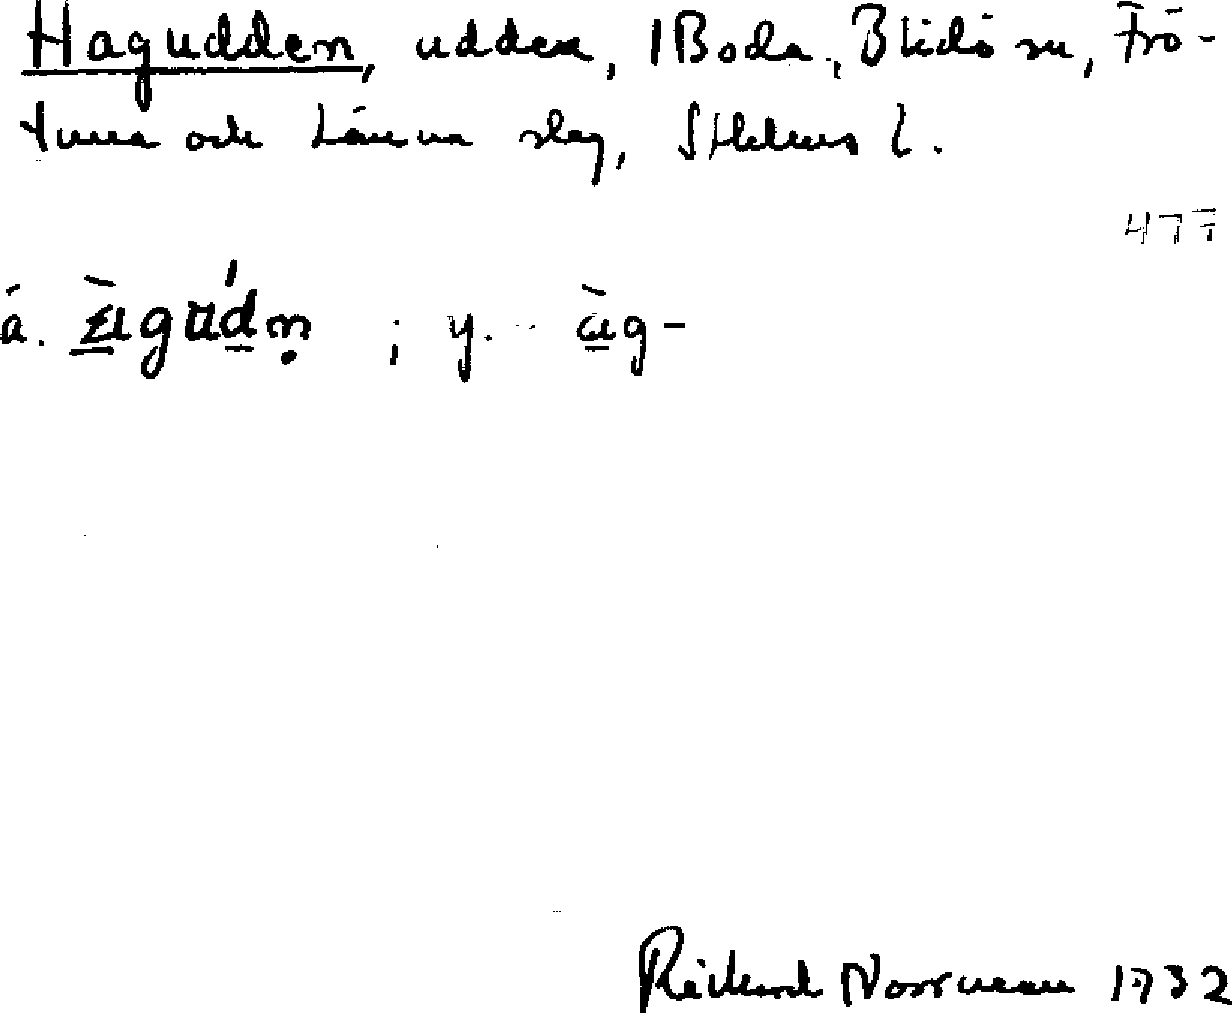 Hagudden, udden, i Boda, Blidö sn, Frö-
tuna och Länna slag, Sthlms l.
477
ä. àgúdn̥ ; y. -- àg-
Rickard Norrman 1932